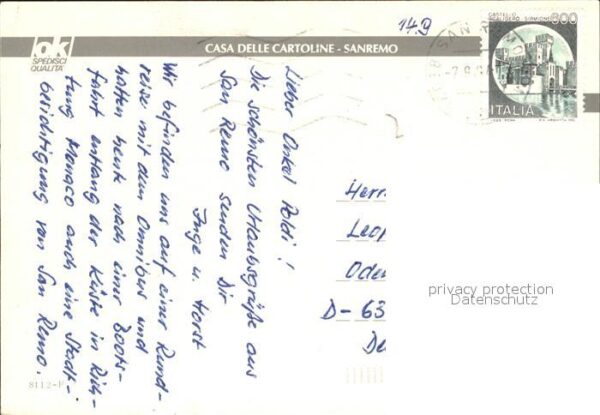 14.9
CASA DELLE CARTOLINE - SANREMO
ok
SPEDISCI
QUALITA'
CASTELLO
SCALIGERO SIRMIONE
800
ITALIA
Lieber Onkel Poldi!
Die schönsten Urlaubsgrüße aus
San Remo senden Dir
Inge u. Horst
Wir befinden uns auf einer Rund-
reise mit dem Omnibus und
hatten heute nach einer Boots-
fahrt entlang der Küste in Rich-
tung Monaco auch eine Stadt-
besichtigung von San Remo.
Herr
Leop
Oden
D-63
privacy protection
Datenschutz
8112-F